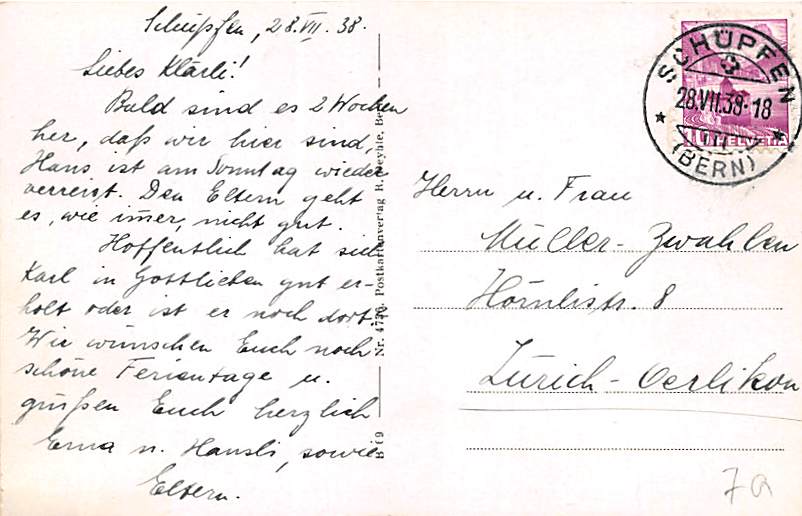 Schüpfen, 28.VII.38.
Liebes Klärli!
Bald sind es 2 Wochen
her, daß wir hier sind,
Hans ist am Sonntag wieder
verreist. Den Eltern geht
es, wie im̄er, nicht gut.
Hoffentlich hat sich
Karl in Gottlieben gut er-
holt oder ist er noch dort.
Wir wünschen Euch noch
schöne Ferientage u.
grüßen Euch herzlich
Erna u. Hansli, sowie
Eltern.
B 19 Nr. 4770 Postkartenverlag R. Deyhle, Bern
SCHÜPFEN
28.VII.38-18
(BERN)
10 HELVETIA
Herrn u. Frau
Müller-Zwahlen
Hörnlistr. 8
Zürich-Oerlikon
7a